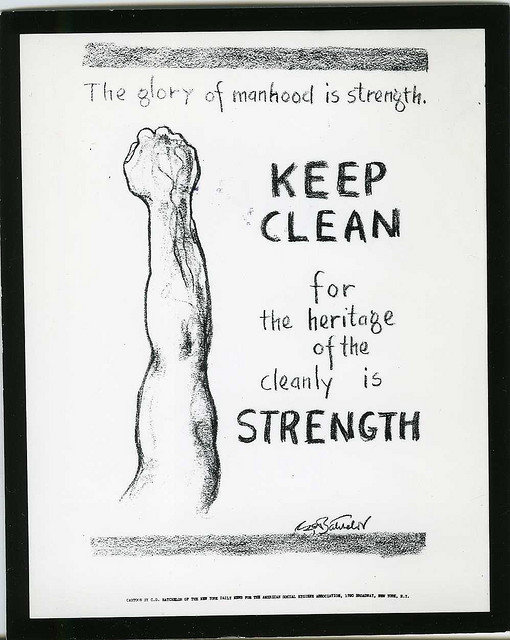 The glory of manhood is strength.
KEEP
CLEAN
for
the heritage
of the
cleanly is
STRENGTH
CARTOON BY C.D. BATCHELOR OF THE NEW YORK DAILY NEWS FOR THE AMERICAN SOCIAL HYGIENE ASSOCIATION, 1790 BROADWAY, NEW YORK, N.Y.